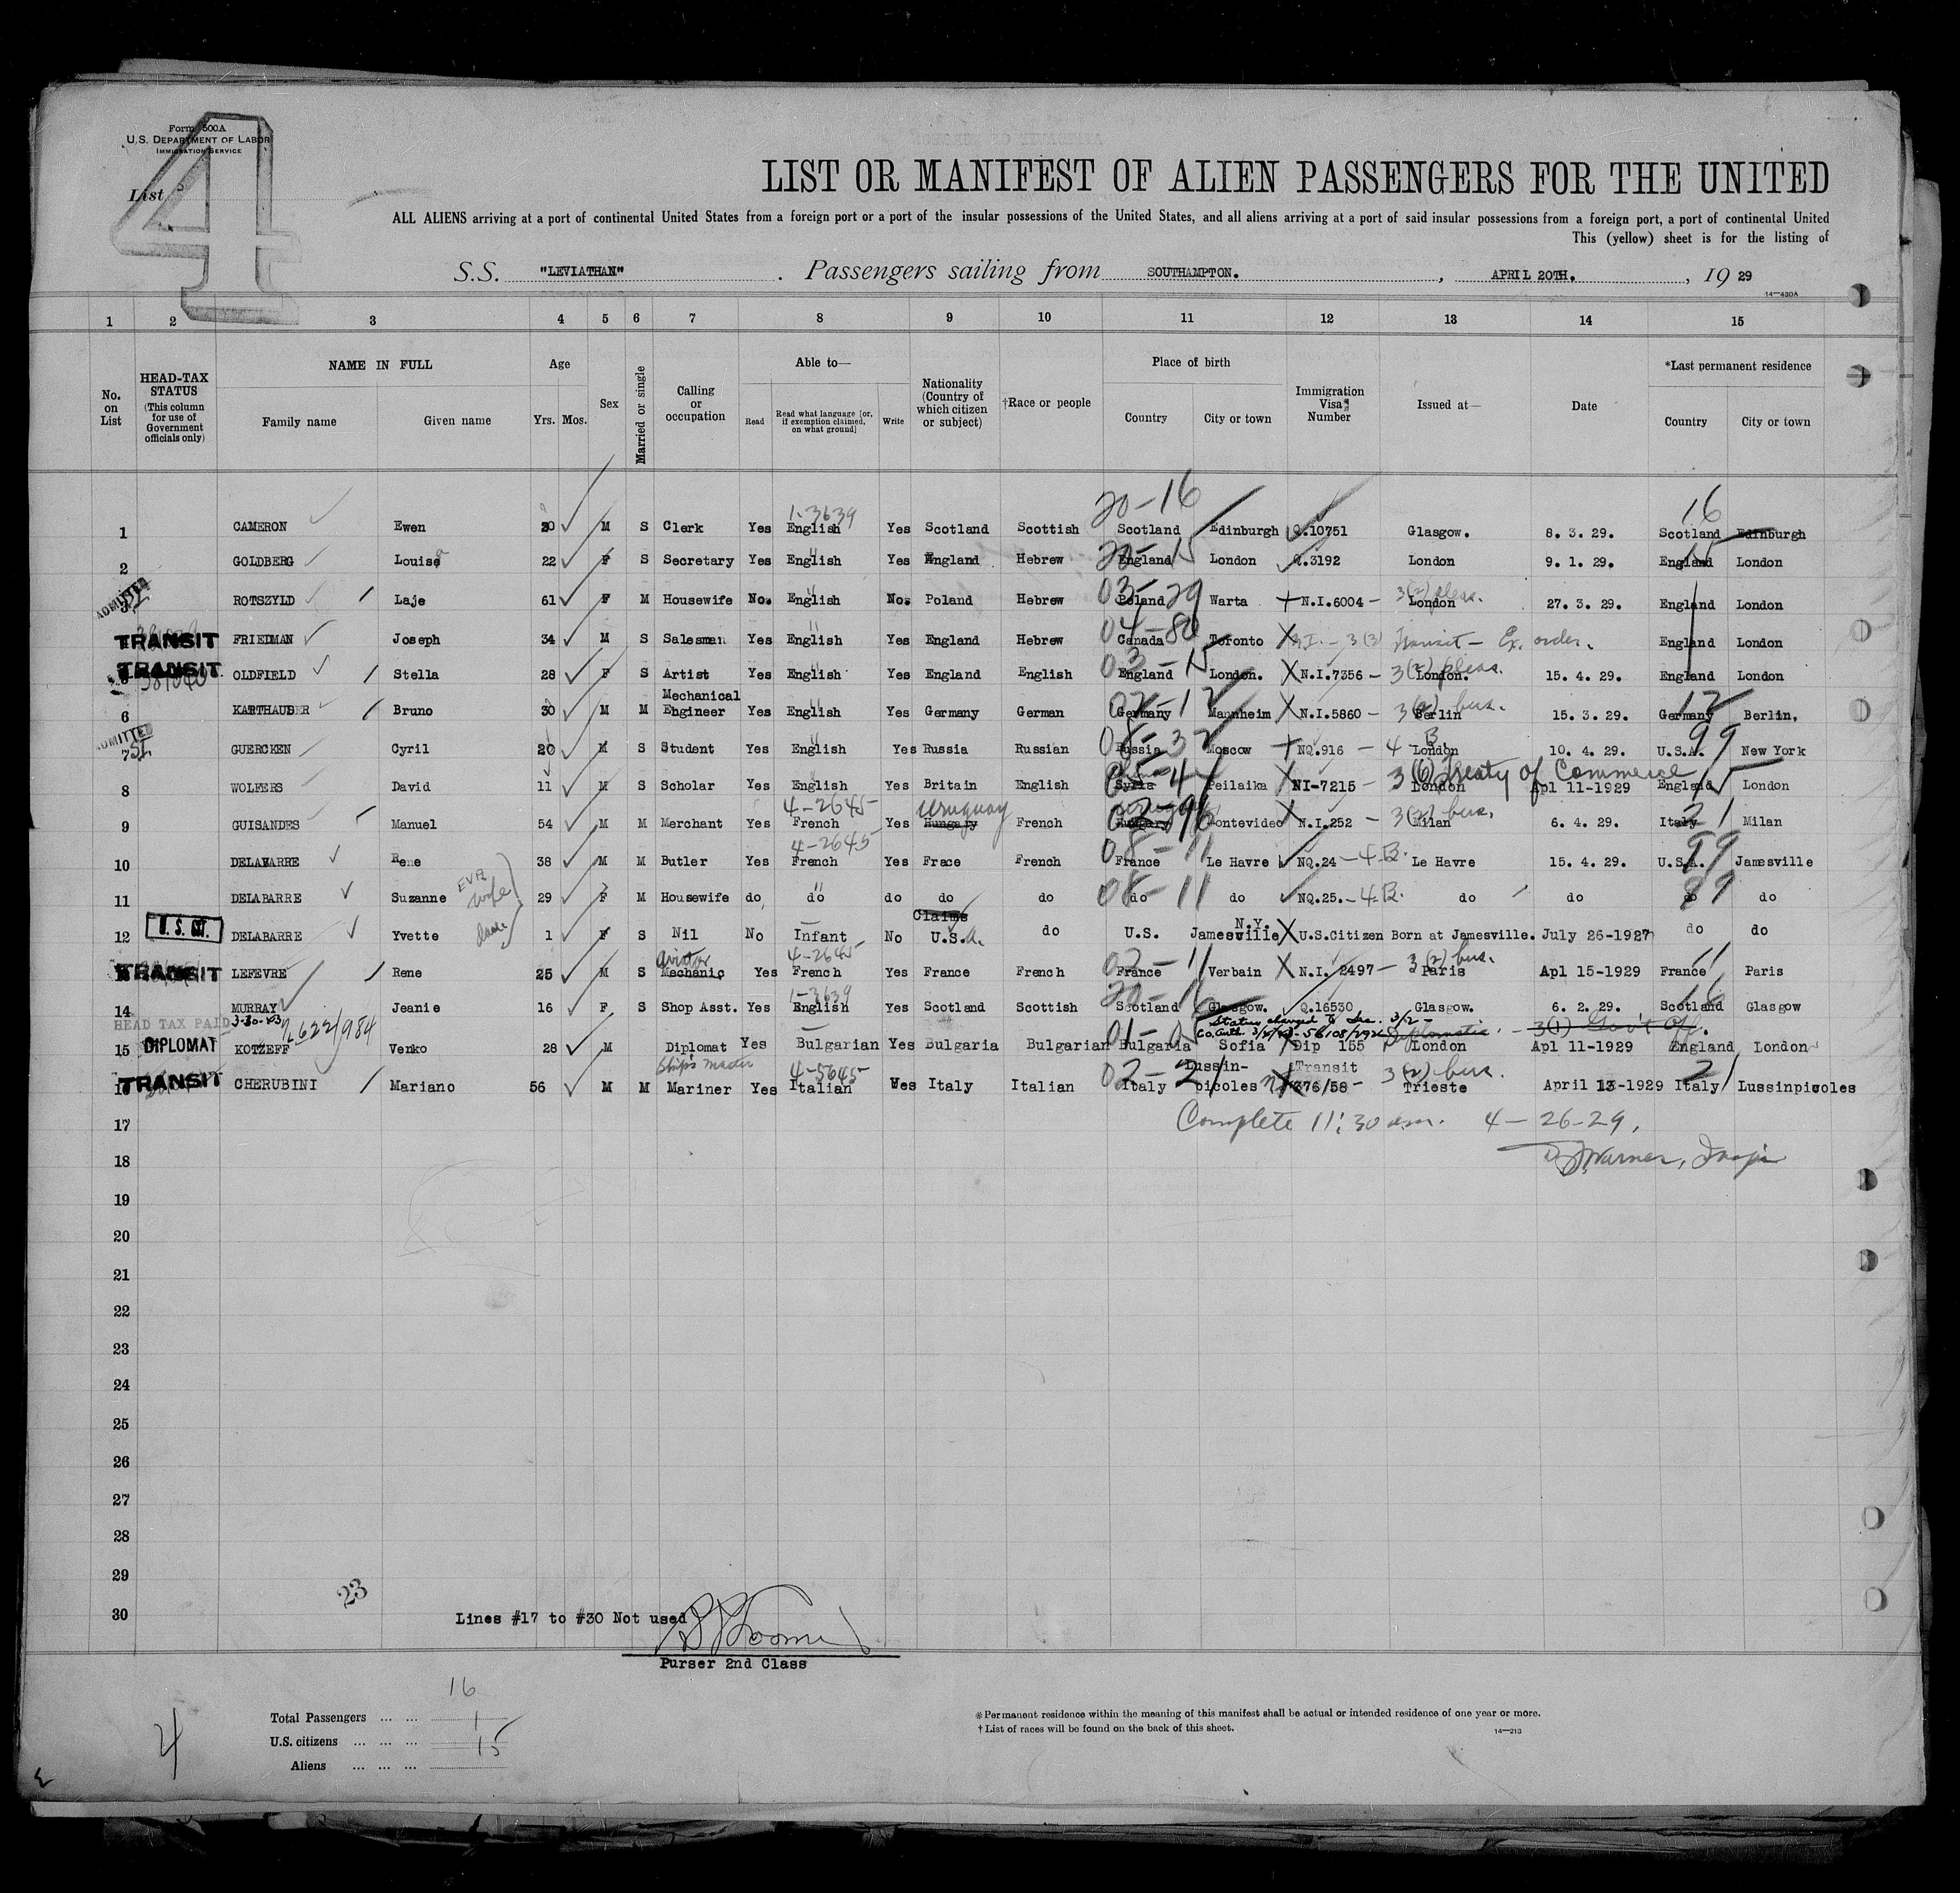 Form 500A
U.S. DEPARTMENT OF LABOR
IMMIGRATION SERVICE
List
4
LIST OR MANIFEST OF ALIEN PASSENGERS FOR THE UNITED
ALL ALIENS arriving at a port of continental United States from a foreign port or a port of the insular possessions of the United States, and all aliens arriving at a port of said insular possessions from a foreign port, a port of continental United
This (yellow) sheet is for the listing of
S.S. "LEVIATHAN" . Passengers sailing from SOUTHAMPTON. , APRIL 20TH. , 19 29
14—430A
1 2 3 4 5 6 7 8 9 10 11 12 13 14 15
No. on List
HEAD-TAX STATUS (This column for use of Government officials only)
NAME IN FULL
Family name Given name
Age
Yrs. Mos.
Sex
Married or single
Calling or occupation
Able to—
Read
Read what language [or, if exemption claimed, on what ground]
Write
Nationality (Country of which citizen or subject)
†Race or people
Place of birth
Country City or town
Immigration Visa Number
Issued at—
Date
*Last permanent residence
Country City or town
20-16 16
1-3639
1 CAMERON Ewen 20 M S Clerk Yes English Yes Scotland Scottish Scotland Edinburgh Q.10751 Glasgow. 8. 3. 29. Scotland Edinburgh
2 GOLDBERG Louise 22 F S Secretary Yes English Yes England Hebrew 20-15 England London Q.3192 London 9. 1. 29. England 15 London
ADMITTED
ROTSZYLD Laje 61 F M Housewife No. English No. Poland Hebrew 03-29 Poland Warta N.I.6004 — 3(2) pleas. London 27. 3. 29. England London
TRANSIT FRIEDMAN Joseph 34 M S Salesman Yes English Yes England Hebrew 04-80 Canada Toronto N.I. — 3(3) Transit — Ex. order. England London
TRANSIT OLDFIELD Stella 28 F S Artist Yes English Yes England English 03-15 England London. N.I.7356 — 3(2) pleas. London. 15. 4. 29. England London
6 KARTHAUSER Bruno 30 M M Mechanical Engineer Yes English Yes Germany German 02-12 Germany Mannheim N.I.5860 — 3(2) bus. Berlin 15. 3. 29. Germany 12 Berlin,
ADMITTED
7 GUERCKEN Cyril 20 M S Student Yes English Yes Russia Russian 08-32 Russia Moscow NQ.916 — 4 B. London 10. 4. 29. U.S.A. 99 New York
8 WOLFERS David 11 M S Scholar Yes English Yes Britain English Syria Peilaika NI-7215 — 3(6) Treaty of Commerce London Apl 11-1929 England 15 London
4-2645 Uruguay
9 GUISANDES Manuel 54 M M Merchant Yes French Yes Hungary French 02-96 Hungary Montevideo N.I.252 — 3(2) bus. Milan 6. 4. 29. Italy 21 Milan
4-2645
10 DELABARRE Rene 38 M M Butler Yes French Yes Frace French 08-11 France Le Havre NQ.24 — 4-B. Le Havre 15. 4. 29. U.S.A. 99 Jamesville
11 DELABARRE Suzanne EVA wife 29 F M Housewife do do do do do 08-11 do do NQ.25. — 4B. do do 89 do do
Claims
U.S. CIT.
12 DELABARRE Yvette 1 F S Nil No Infant No U.S.A. do U.S. Jamesville N.Y. U.S.Citizen Born at Jamesville. July 26-1927 do do
aviator 4-2645
TRANSIT LEFEVRE Rene 25 M S Mechanic Yes French Yes France French 02-11 France Verbain N.I. 2497 — 3(2) bus. Paris Apl 15-1929 France 11 Paris
1-3639
14 MURRAY Jeanie 16 F S Shop Asst. Yes English Yes Scotland Scottish 20-16 Scotland Glasgow. Q.16530 Glasgow. 6. 2. 29. Scotland 16 Glasgow
HEAD TAX PAID
Status changed to Sec. 3/2 —
Diplomatic. — 3(1) Gov't Off.
15 DIPLOMAT KOTZEFF Venko 28 M Diplomat Yes Bulgarian Yes Bulgaria Bulgarian Bulgaria Sofia Dip 155 London Apl 11-1929 England London
Ship's Master 4-5645
TRANSIT CHERUBINI Mariano 56 M M Mariner Yes Italian Yes Italy Italian 02-21 Italy Lussin-picoles Transit 376/58 — 3(2) bus. Trieste April 13-1929 Italy 21 Lussinpicoles
17 Complete 11:30 a.m. 4-26-29.
18
19
20
21
22
23
24
25
26
27
28
29
23
30 Lines #17 to #30 Not used
Purser 2nd Class
16
Total Passengers ... ... 1
U.S. citizens ... ... ... 15
Aliens ... ... ...
4
*Permanent residence within the meaning of this manifest shall be actual or intended residence of one year or more.
†List of races will be found on the back of this sheet.
14—213